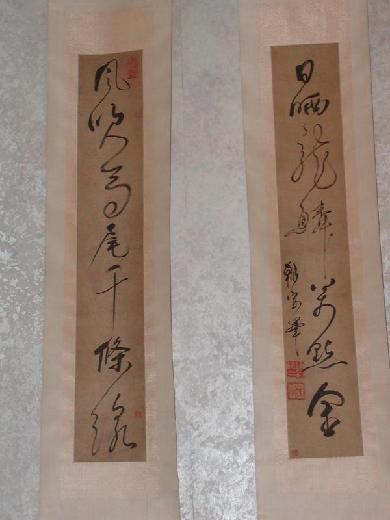 風吹馬尾千條線
日晒龍鱗萬點金